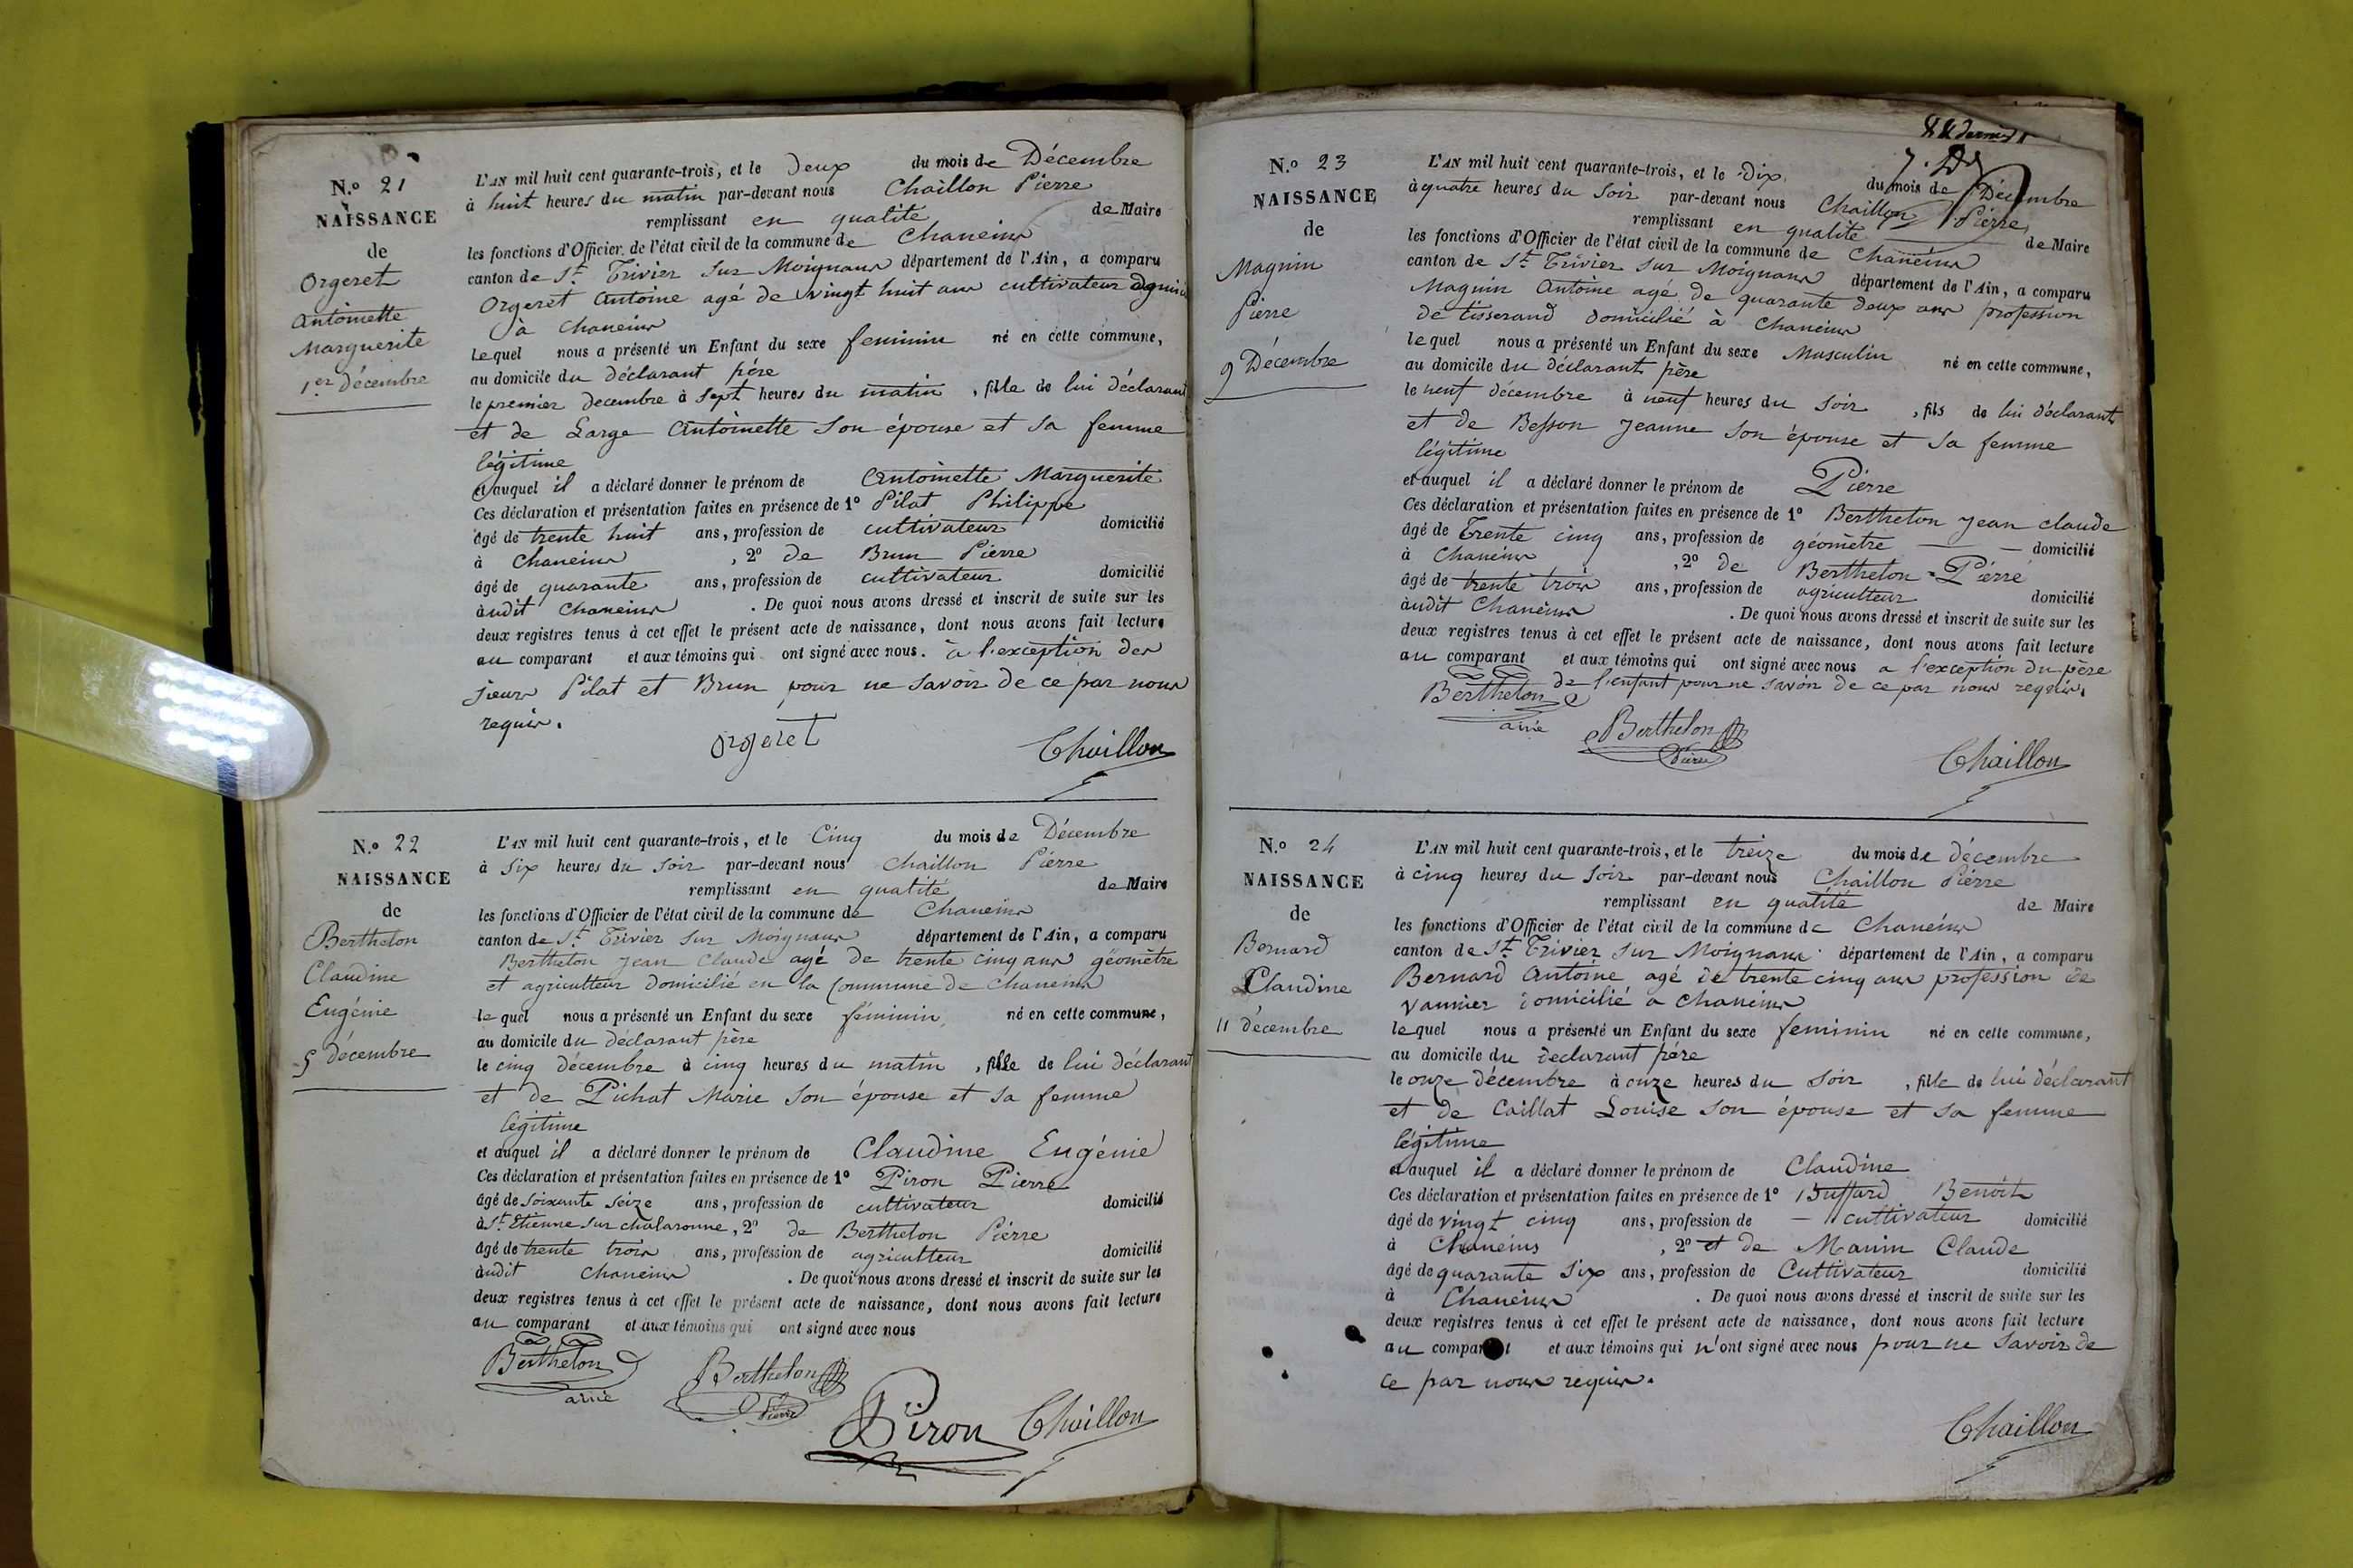 N.o 21
NAISSANCE
de
Orgeret
Antoinette
Marguerite
1er décembre
L'AN mil huit cent quarante-trois, et le deux du mois de Décembre
à huit heures du matin par-devant nous Chaillon Pierre
remplissant en qualité de Maire
les fonctions d'Officier de l'état civil de la commune de Chaneins
canton de St Trivier sur Moignans département de l'Ain, a comparu
Orgeret Antoine agé de vingt huit ans cultivateur
à Chaneins
lequel nous a présenté un Enfant du sexe feminin né en cette commune,
au domicile du déclarant père
le premier decembre à sept heures du matin, fille de lui déclarant
et de Large Antoinette son épouse et sa femme
légitime
et auquel il a déclaré donner le prénom de Antoinette Marguerite
Ces déclaration et présentation faites en présence de 1° Pilat Philippe
âgé de trente huit ans, profession de cultivateur domicilié
à Chaneins, 2° de Brun Pierre
âgé de quarante ans, profession de cultivateur domicilié
audit Chaneins. De quoi nous avons dressé et inscrit de suite sur les
deux registres tenus à cet effet le présent acte de naissance, dont nous avons fait lecture
au comparant et aux témoins qui ont signé avec nous. à l'exception des
sieurs Pilat et Brun pour ne savoir de ce par nous
requis.
orgeret Chaillon
N.o 22
NAISSANCE
de
Berthelon
Claudine
Eugénie
5 décembre
L'AN mil huit cent quarante-trois, et le Cinq du mois de Décembre
à six heures du soir par-devant nous Chaillon Pierre
remplissant en qualité de Maire
les fonctions d'Officier de l'état civil de la commune de Chaneins
canton de St Trivier sur Moignans département de l'Ain, a comparu
Berthelon Jean Claude agé de trente cinq ans géomètre
et agriculteur domicilié en la Commune de Chaneins
lequel nous a présenté un Enfant du sexe féminin né en cette commune,
au domicile du déclarant père
le cinq décembre à cinq heures du matin, fille de lui déclarant
et de Pichat Marie son épouse et sa femme
légitime
et auquel il a déclaré donner le prénom de Claudine Eugénie
Ces déclaration et présentation faites en présence de 1° Piron Pierre
âgé de soixante seize ans, profession de cultivateur domicilié
à St Etienne sur chalaronne, 2° de Berthelon Pierre
âgé de trente trois ans, profession de agriculteur domicilié
audit Chaneins. De quoi nous avons dressé et inscrit de suite sur les
deux registres tenus à cet effet le présent acte de naissance, dont nous avons fait lecture
au comparant et aux témoins qui ont signé avec nous
Berthelon ainé Berthelon Pierre
Piron Chaillon
N.o 23
NAISSANCE
de
Magnin
Pierre
9 Décembre
L'AN mil huit cent quarante-trois, et le Dix du mois de Décembre
à quatre heures du soir par-devant nous Chaillon Pierre
remplissant en qualité de Maire
les fonctions d'Officier de l'état civil de la commune de Chaneins
canton de St Trivier sur Moignans département de l'Ain, a comparu
Magnin Antoine agé de quarante deux ans profession
de tisserand domicilié à Chaneins
lequel nous a présenté un Enfant du sexe Masculin né en cette commune,
au domicile du déclarant père
le neuf décembre à neuf heures du soir, fils de lui déclarant
et de Besson Jeanne son épouse et sa femme
légitime
et auquel il a déclaré donner le prénom de Pierre
Ces déclaration et présentation faites en présence de 1° Berthelon Jean claude
âgé de Trente cinq ans, profession de géomètre domicilié
à Chaneins, 2° de Berthelon Pierre
âgé de trente trois ans, profession de agriculteur domicilié
audit Chaneins. De quoi nous avons dressé et inscrit de suite sur les
deux registres tenus à cet effet le présent acte de naissance, dont nous avons fait lecture
au comparant et aux témoins qui ont signé avec nous a l'exception du père
de l'enfant pour ne savoir de ce par nous requis.
Berthelon ainé Berthelon Pierre
Chaillon
N.o 24
NAISSANCE
de
Bernard
Claudine
11 décembre
L'AN mil huit cent quarante-trois, et le treize du mois de décembre
à cinq heures du soir par-devant nous Chaillon Pierre
remplissant en qualité de Maire
les fonctions d'Officier de l'état civil de la commune de Chaneins
canton de St Trivier sur Moignans département de l'Ain, a comparu
Bernard Antoine agé de trente cinq ans profession de
vannier domicilié a Chaneins
lequel nous a présenté un Enfant du sexe feminin né en cette commune,
au domicile du declarant père
le onze décembre à onze heures du soir, fille de lui déclarant
et de Caillat Louise son épouse et sa femme
légitime
et auquel il a déclaré donner le prénom de Claudine
Ces déclaration et présentation faites en présence de 1° Buffard Benoit
âgé de vingt cinq ans, profession de cultivateur domicilié
à Chaneins, 2° et de Manin Claude
âgé de quarante six ans, profession de Cultivateur domicilié
à Chaneins. De quoi nous avons dressé et inscrit de suite sur les
deux registres tenus à cet effet le présent acte de naissance, dont nous avons fait lecture
au comparant et aux témoins qui n'ont signé avec nous pour ne savoir de
ce par nous requis.
Chaillon